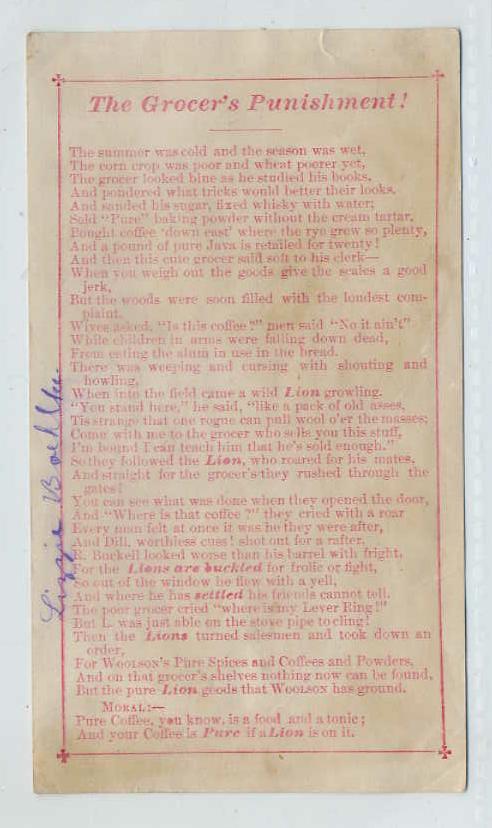 The Grocer's Punishment!
The summer was cold and the season was wet,
The corn crop was poor and wheat poorer yet,
The grocer looked blue as he studied his books,
And pondered what tricks would better their looks.
And sanded his sugar, fixed whisky with water;
Sold "Pure" baking powder without the cream tartar,
Bought coffee 'down east' where the rye grew so plenty,
And a pound of pure Java is retailed for twenty!
And then this cute grocer said soft to his clerk—
When you weigh out the goods give the scales a good
jerk,
But the woods were soon filled with the loudest com-
plaint.
Wives asked, "Is this coffee?" men said "No it ain't"
While children in arms were falling down dead,
From eating the alum in use in the bread.
There was weeping and cursing with shouting and
howling,
When into the field came a wild Lion growling.
"You stand here," he said, "like a pack of old asses,
Tis strange that one rogue can pull wool o'er the masses;
Come with me to the grocer who sells you this stuff,
I'm bound I can teach him that he's sold enough."
So they followed the Lion, who roared for his mates,
And straight for the grocer's they rushed through the
gates!
You can see what was done when they opened the door,
And "Where is that coffee?" they cried with a roar
Every man felt at once it was he they were after,
And Dill, worthless cuss! shot out for a rafter,
R. Buckell looked worse than his barrel with fright,
For the Lions are buckled for frolic or fight,
So out of the window he flew with a yell,
And where he has settled his friends cannot tell.
The poor grocer cried "where is my Lever Ring!"
But L. was just able on the stove pipe to cling!
Then the Lions turned salesmen and took down an
order,
For WOOLSON'S Pure Spices and Coffees and Powders,
And on that grocer's shelves nothing now can be found,
But the pure Lion goods that WOOLSON has ground.
MORAL:—
Pure Coffee, you know, is a food and a tonic;
And your Coffee is Pure if a Lion is on it.
Lizzie